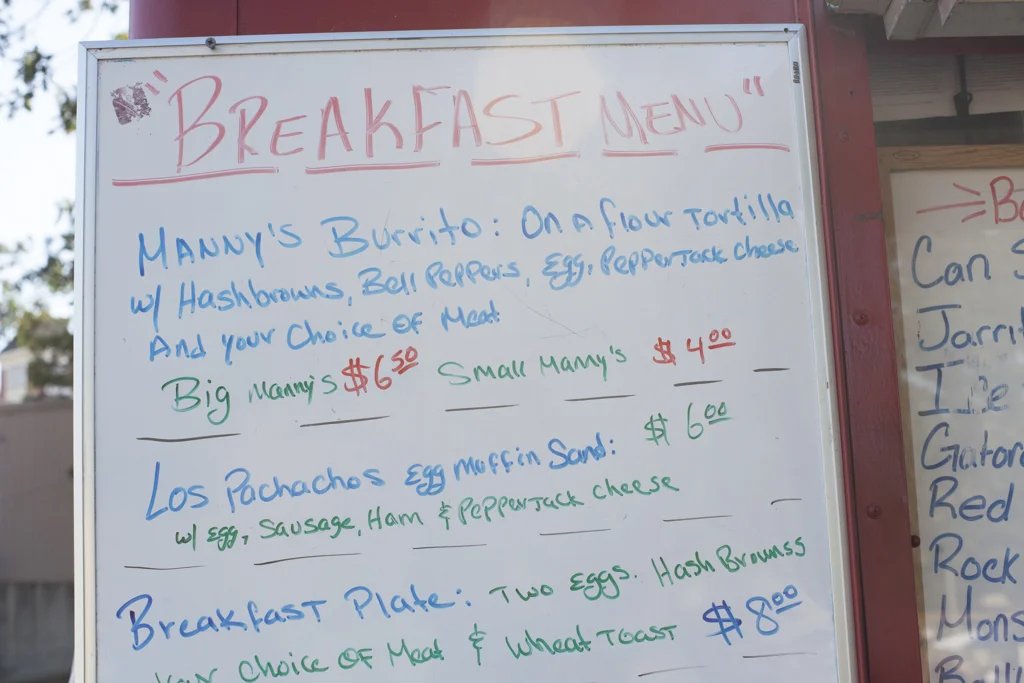 "BREAKFAST MENU"
MANNY'S Burrito: ON A flour Tortilla
w/ Hashbrowns, Bell Peppers, Egg, PepperJack Cheese
And your Choice OF Meat
Big Manny's $6 50 Small Manny's $4 00
Los Pachachos Egg Muffin Sand: $6 00
w/ Egg, Sausage, Ham & PepperJack Cheese
Breakfast Plate: Two Eggs. Hash Brownss
Your Choice OF Meat & Wheat TOAST $8 00
Can
Red
Rock